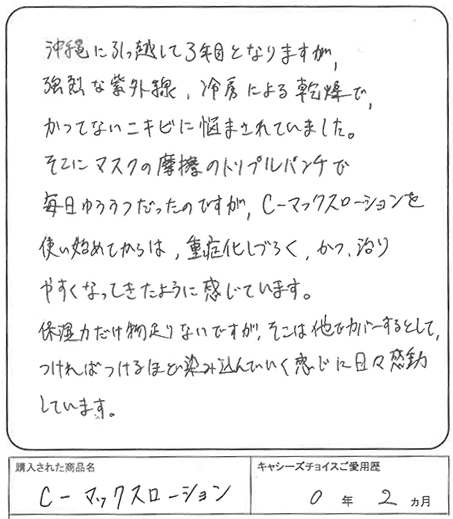 沖縄に引っ越して3年目となりますが、
強烈な紫外線、冷房による乾燥で、
かつてないニキビに悩まされていました。
そこにマスクの摩擦のトリプルパンチで
毎日ゆううつだったのですが、C-マックスローションを
使い始めてからは、重症化しづらく、かつ、治り
やすくなってきたように感じています。
保湿力だけ物足りないですが、そこは他でカバーするとして、
つければつけるほど染み込んでいく感じに日々感動
しています。
購入された商品名
キャシーズチョイスご愛用歴
C-マックスローション
0年2ヵ月